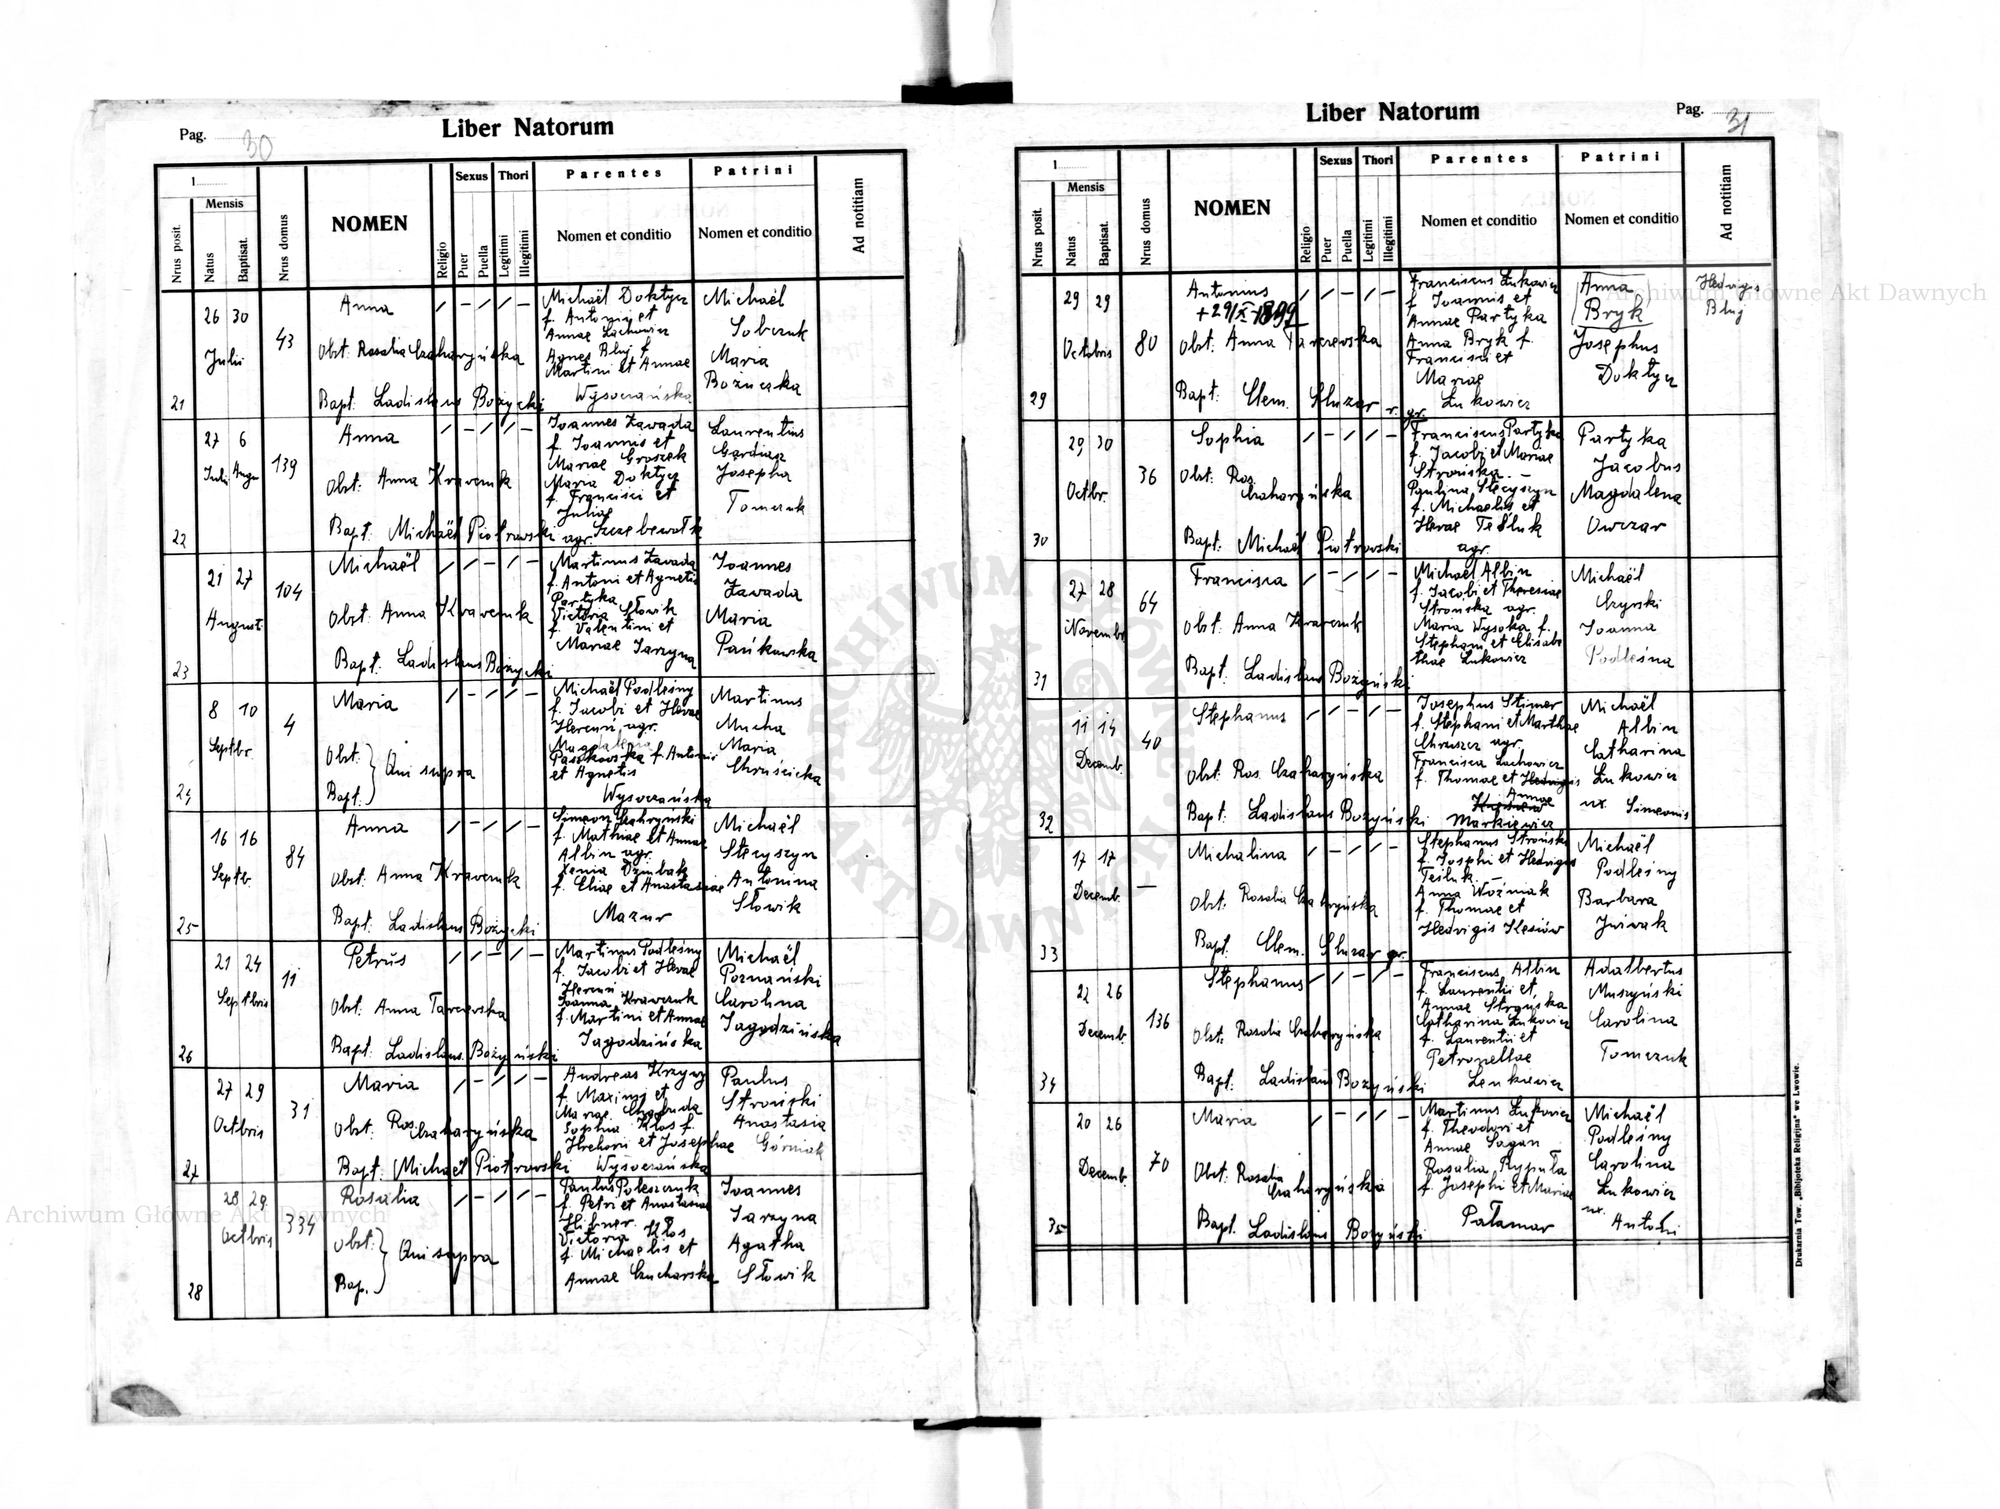 Liber Natorum
Pag. 30
1
Nrus posit.
Mensis
Natus
Baptisat.
Nrus domus
NOMEN
Religio
Sexus
Puer
Puella
Thori
Legitimi
Illegitimi
Parentes
Nomen et conditio
Patrini
Nomen et conditio
Ad notitiam
21
26 30
Julii
43
Anna
Obst. Rosalia Czaharyńska
Bapt. Ladislaus Bożycki
Michaël Doktycz
f. Antonii et
Annae Lachowicz
Agnes Bluj f.
Martini et Annae
Wysoczańska
Michaël
Sobczuk
Maria
22
27 6
Julii Augu
139
Anna
Obst. Anna Kravczuk
Bapt. Michaël Piotrowski
Joannes Zawada
f. Joannis et
Mariae Groszek
Maria Doktycz
f. Francisci et
Juliae
agr.
Laurentius
Josepha
Tomczuk
23
21 27
August.
104
Michaël
Obst. Anna Kravczuk
Bapt. Ladislaus Bożycki
Martinus Zawada
f. Antoni et Agnetis
Partyka
Victoria Słowik
f. Valentini et
Mariae Jarzyna
Joannes
Zawada
Maria
Pańkowska
24
8 10
Septbr.
4
Maria
Obst. } Qui supra
Bapt. }
Michaël Podleśny
f. Jacobi et Hevae
Hercuń agr.
Magdalena
Paszkowska f. Antonii
et Agnetis
Wysoczańska
Martinus
Mucha
Maria
Chruścicka
25
16 16
Septb.
84
Anna
Obst. Anna Kravczuk
Bapt. Ladislaus Bożycki
Simeon Czahryński
f. Mathiae et Annae
Albin agr.
Xenia Dzimbak
f. Eliae et Anastasiae
Mazur
Michaël
Steczyszyn
Antonina
Słowik
26
21 24
Septbris
11
Petrus
Obst. Anna Tarczewska
Bapt. Ladislaus Bożyński
Martinus Podleśny
f. Jacobi et Hevae
Hercuń
Joanna Krawczuk
f. Martini et Annae
Jagodzińska
Michaël
Poznański
Carolina
Jagodzińska
27
27 29
Octbris
31
Maria
Obst. Ros. Czaharyńska
Bapt. Michaël Piotrowski
Andreas Krzywy
f. Maximi et
Mariae
Sophia Kłos f.
Hrehorii et Josephae
Wysoczańska
Paulus
Stroński
Anastasia
Górniak
28
28 29
Octbris
334
Rosalia
Obst. } Qui supra
Bap. }
Paulus Poleszczuk
f. Petri et Anastasiae
Hibner
Victoria Kłos
f. Michaelis et
Annae Czucharska
Joannes
Jarzyna
Agatha
Słowik
Liber Natorum
Pag. 31
1
Nrus posit.
Mensis
Natus
Baptisat.
Nrus domus
NOMEN
Religio
Sexus
Puer
Puella
Thori
Legitimi
Illegitimi
Parentes
Nomen et conditio
Patrini
Nomen et conditio
Ad notitiam
29
29 29
Octobris
80
Antonius
+ 29/X 1899
Obst. Anna Tarczewska
Bapt. Clem. Sluzar r. gr.
Franciscus Łukowicz
f. Joannis et
Annae Partyka
Anna Bryk f.
Francisci et
Mariae
Łukowicz
Anna
Bryk
Josephus
Doktycz
Hedvigis
Bluj
30
29 30
Octbr.
36
Sophia
Obst. Ros.
Czaharyńska
Bapt. Michaël Piotrowski
Franciscus Partyka
f. Jacobi et Mariae
Strońska
Paulina Steczyszyn
f. Michaelis et
Hevae Tesluk
agr.
Partyka
Jacobus
Magdalena
Owczar
31
27 28
Novembr.
64
Francisca
Obst. Anna Kravczuk
Bapt. Ladislaus Bożyński
Michaël Albin
f. Jacobi et Theresiae
Strońska agr.
Maria Wysoka f.
Stephani et Elisabe
thae Łukowicz
Michaël
Czyrski
Joanna
Podleśna
32
11 14
Decemb.
40
Stephanus
Obst. Ros. Czaharyńska
Bapt. Ladislaus Bożyński
Josephus Stimer
f. Stephani et Marthae
Chruszcz agr.
Francisca Lachowicz
f. Thomae et Hedvigis
Annae
Markiewicz
Michaël
Albin
Catharina
Łukowicz
ux. Simeonis
33
17 17
Decemb.
—
Michalina
Obst. Rosalia Czahryńska
Bapt. Clem. Sluzar gr.
Stephanus Stroński
f. Josphi et Hedvigis
Tesluk
Anna Woźniak
f. Thomae et
Hedvigis Kesiów
Michaël
Podleśny
Barbara
34
22 26
Decemb.
136
Stephanus
Obst. Rosalia Czaharyńska
Bapt. Ladislaus Bożyński
Franciscus Albin
f. Laurentii et
Annae Strońska
Catharina Łukowicz
f. Laurentii et
Petronellae
Lenkiewicz
Adalbertus
Muszyński
Carolina
Tomczuk
35
20 26
Decemb.
70
Maria
Obst. Rosalia
Czaharyńska
Bapt. Ladislaus Bożyński
Martinus Łukowicz
f. Theodori et
Annae Sagan
Rosalia Rypuła
f. Josephi et Mariae
Patamar
Michaël
Podleśny
Carolina
Łukowicz
ux. Antoni
Drukarnia Tow. „Bibljoteka Religijna" we Lwowie.
Archiwum Główne Akt Dawnych
Archiwum Główne Akt Dawnych
ARCHIWUM GŁÓWNE AKT DAWNYCH